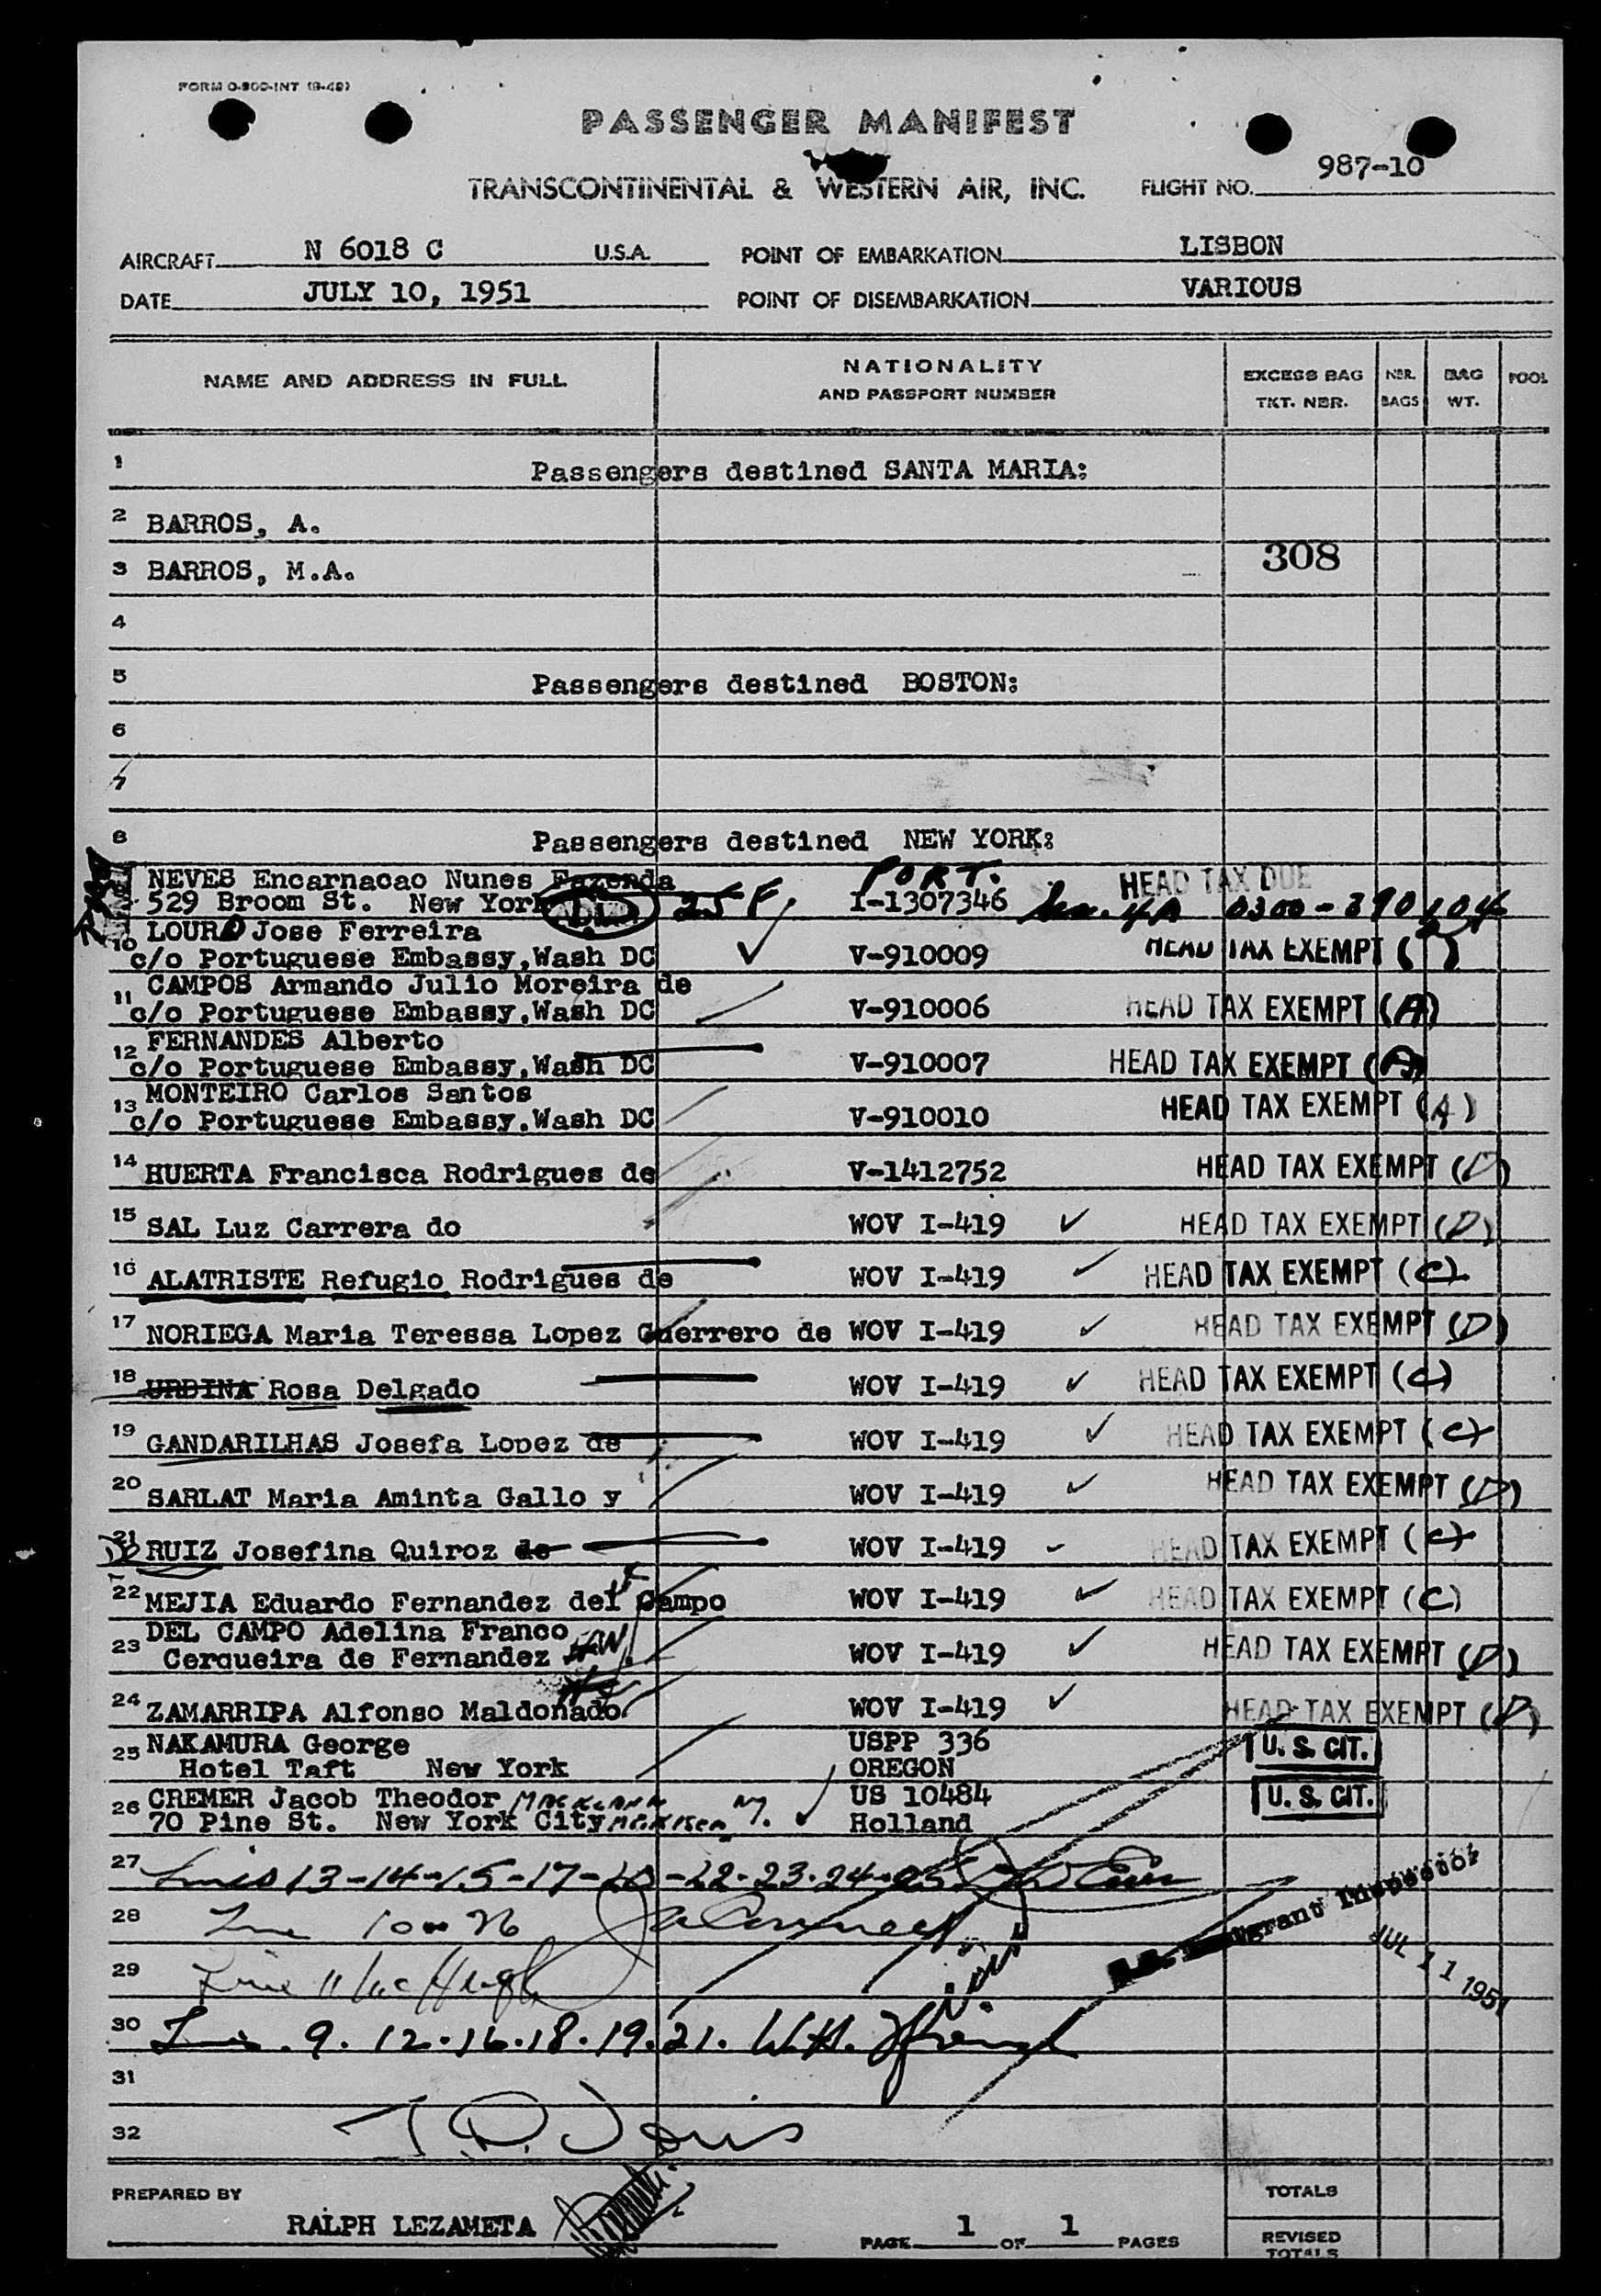 FORM O-800-INT (9-49)
PASSENGER MANIFEST
TRANSCONTINENTAL & WESTERN AIR, INC.
FLIGHT NO. 987-10
AIRCRAFT N 6018 C U.S.A. POINT OF EMBARKATION LISBON
DATE JULY 10, 1951 POINT OF DISEMBARKATION VARIOUS
NAME AND ADDRESS IN FULL NATIONALITY AND PASSPORT NUMBER EXCESS BAG TKT. NBR. NBR. BAGS BAG WT. POOL
1 Passengers destined SANTA MARIA:
2 BARROS, A.
3 BARROS, M.A. 308
4
5 Passengers destined BOSTON:
6
7
8 Passengers destined NEW YORK:
NEVES Encarnacao Nunes Fazenda PORT. HEAD TAX DUE
529 Broom St. New York 25 F. I-1307346 4A 0300-890104
LOURO Jose Ferreira
10 c/o Portuguese Embassy, Wash DC V-910009 HEAD TAX EXEMPT
CAMPOS Armando Julio Moreira de
11 c/o Portuguese Embassy, Wash DC V-910006 HEAD TAX EXEMPT (A)
FERNANDES Alberto
12 c/o Portuguese Embassy, Wash DC V-910007 HEAD TAX EXEMPT (A)
MONTEIRO Carlos Santos
13 c/o Portuguese Embassy. Wash DC V-910010 HEAD TAX EXEMPT (A)
14 HUERTA Francisca Rodrigues de V-1412752 HEAD TAX EXEMPT (D)
15 SAL Luz Carrera do WOV I-419 HEAD TAX EXEMPT (D)
16 ALATRISTE Refugio Rodrigues de WOV I-419 HEAD TAX EXEMPT (C)
17 NORIEGA Maria Teressa Lopez Guerrero de WOV I-419 HEAD TAX EXEMPT (D)
18 URDINA Rosa Delgado WOV I-419 HEAD TAX EXEMPT (C)
19 GANDARILHAS Josefa Lopez de WOV I-419 HEAD TAX EXEMPT (C)
20 SARLAT Maria Aminta Gallo y WOV I-419 HEAD TAX EXEMPT (D)
21 RUIZ Josefina Quiroz de WOV I-419 HEAD TAX EXEMPT (C)
22 MEJIA Eduardo Fernandez del Campo WOV I-419 HEAD TAX EXEMPT (C)
DEL CAMPO Adelina Franco
23 Cerqueira de Fernandez WOV I-419 HEAD TAX EXEMPT (D)
24 ZAMARRIPA Alfonso Maldonado WOV I-419 HEAD TAX EXEMPT (D)
NAKAMURA George USPP 336
25 Hotel Taft New York OREGON U. S. CIT.
CREMER Jacob Theodor US 10484
26 70 Pine St. New York City Holland U. S. CIT.
27 Lines 13-14-15-17-20-22-23-24-25
28 Line 10 26
29 Line 11
Immigrant Inspector
JUL 11 1951
30 9. 12.16.18.19.21. W.H.
31
32
PREPARED BY RALPH LEZAMETA
PAGE 1 OF 1 PAGES
TOTALS
REVISED TOTALS